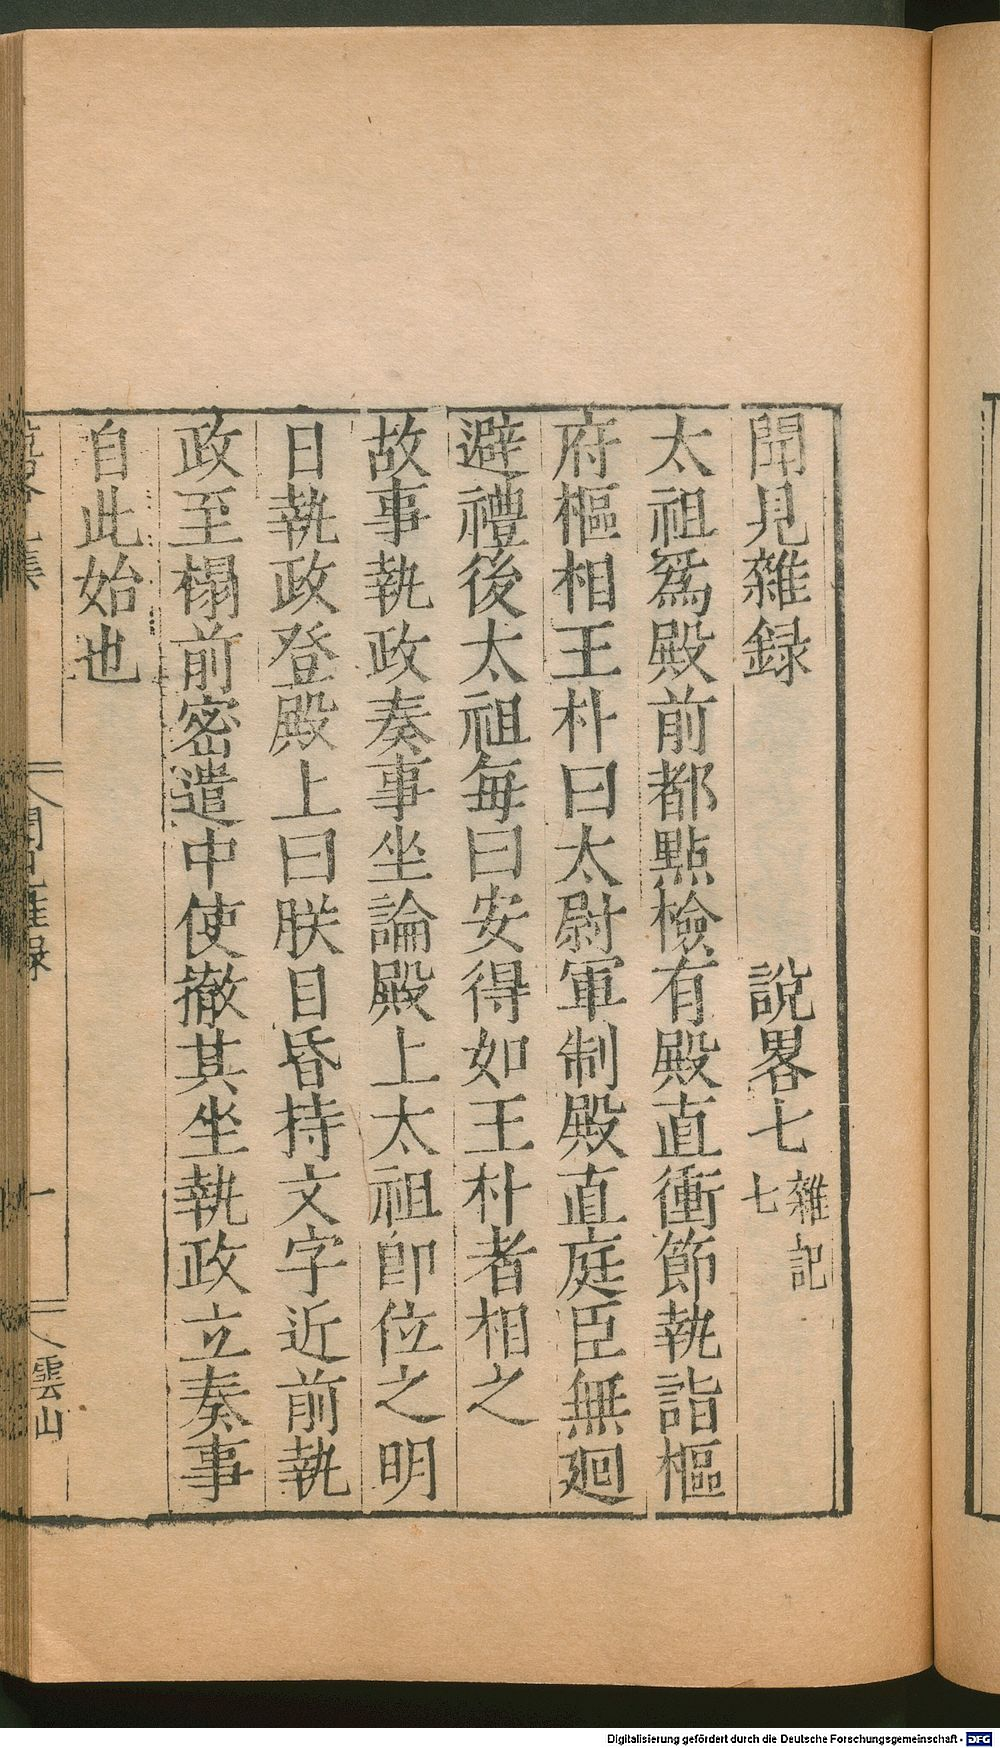 聞見雜録 說畧七 雜記七
太祖爲殿前都點檢有殿直衝節執詣樞
府樞相王朴曰太尉軍制殿直庭臣無廻
避禮後太祖每曰安得如王朴者相之
故事執政奏事坐論殿上太祖卽位之明
日執政登殿上曰朕目昏持文字近前執
政至榻前密遣中使撤其坐執政立奏事
自此始也
聞見雜録
一
雲山
Digitalisierung gefördert durch die Deutsche Forschungsgemeinschaft - DFG